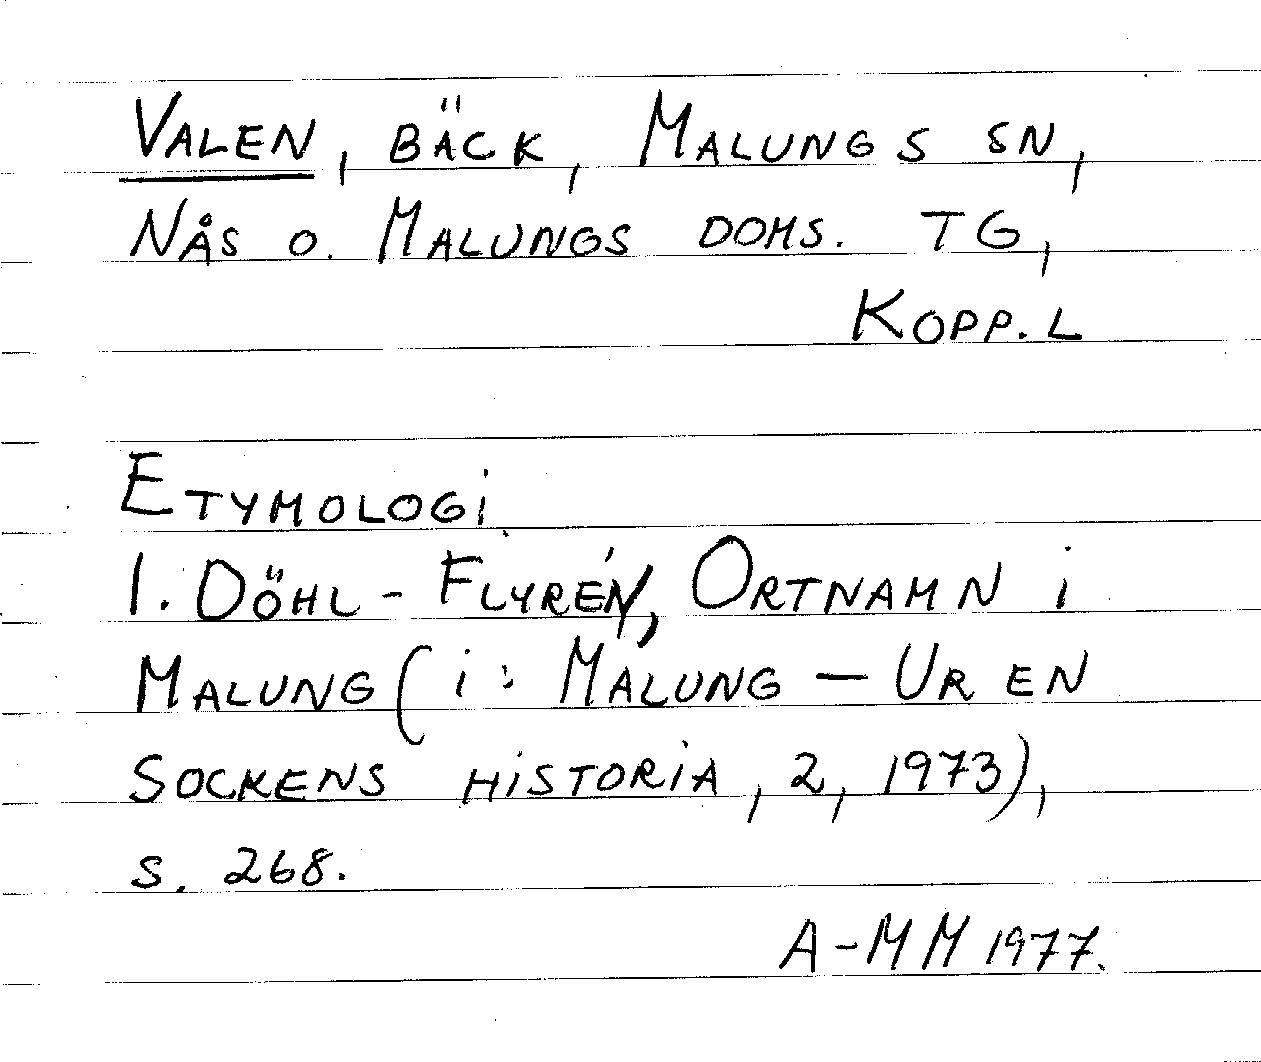 VALEN, BÄCK, MALUNGS SN,
NÅS O. MALUNGS DOMS. TG,
KOPP. L
ETYMOLOGI
I. DÖHL - FLYRÉN, ORTNAMN I
MALUNG (I: MALUNG — UR EN
SOCKENS HISTORIA, 2, 1973),
S. 268.
A-MM 1977.